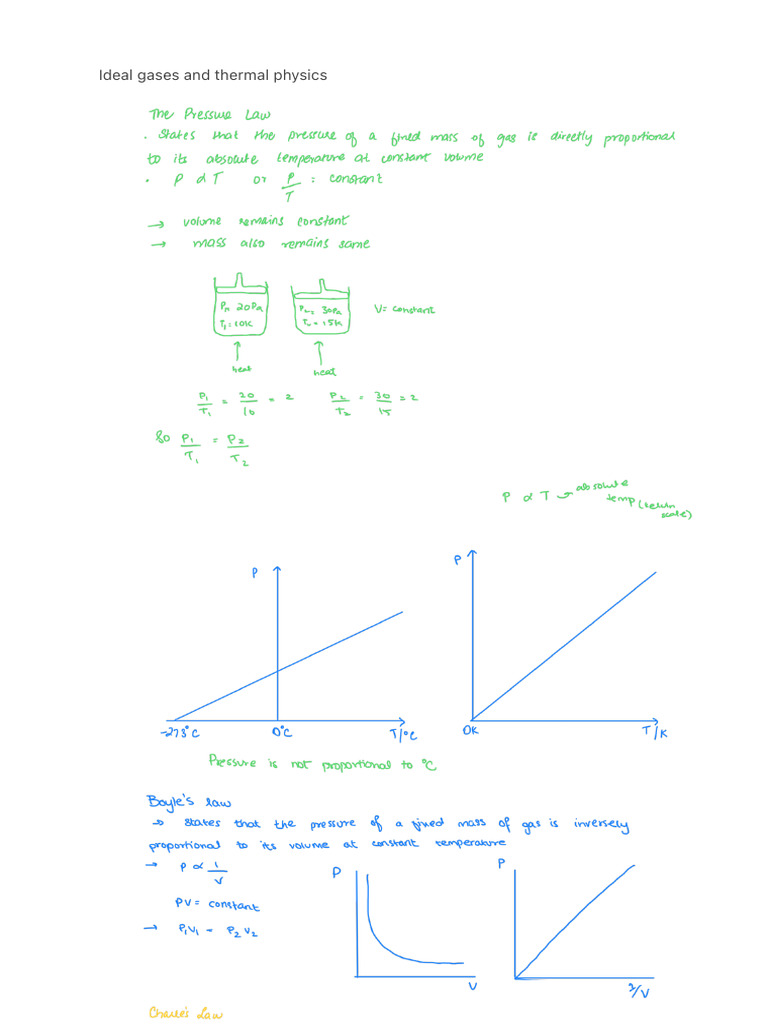 Ideal gases and thermal physics
The Pressure Law
. States that the pressure of a fixed mass of gas is directly proportional
to its absolute temperature at constant volume
• P ∝ T or P/T = constant
→ volume remains constant
→ mass also remains same
P₁= 20Pa
T₁=10K
P₂= 30Pa
T₂ = 15K
V= constant
heat
heat
P₁/T₁ = 20/10 = 2 P₂/T₂ = 30/15 = 2
So P₁/T₁ = P₂/T₂
P ∝ T → absolute
temp (kelvin
scale)
P
-273°C 0°C T/°C
P
0K T/K
Pressure is not proportional to °C
Boyle's law
→ states that the pressure of a fixed mass of gas is inversely
proportional to its volume at constant temperature
→ P ∝ 1/V
PV = constant
→ P₁V₁ = P₂V₂
P
V
P
1/V
Charle's Law